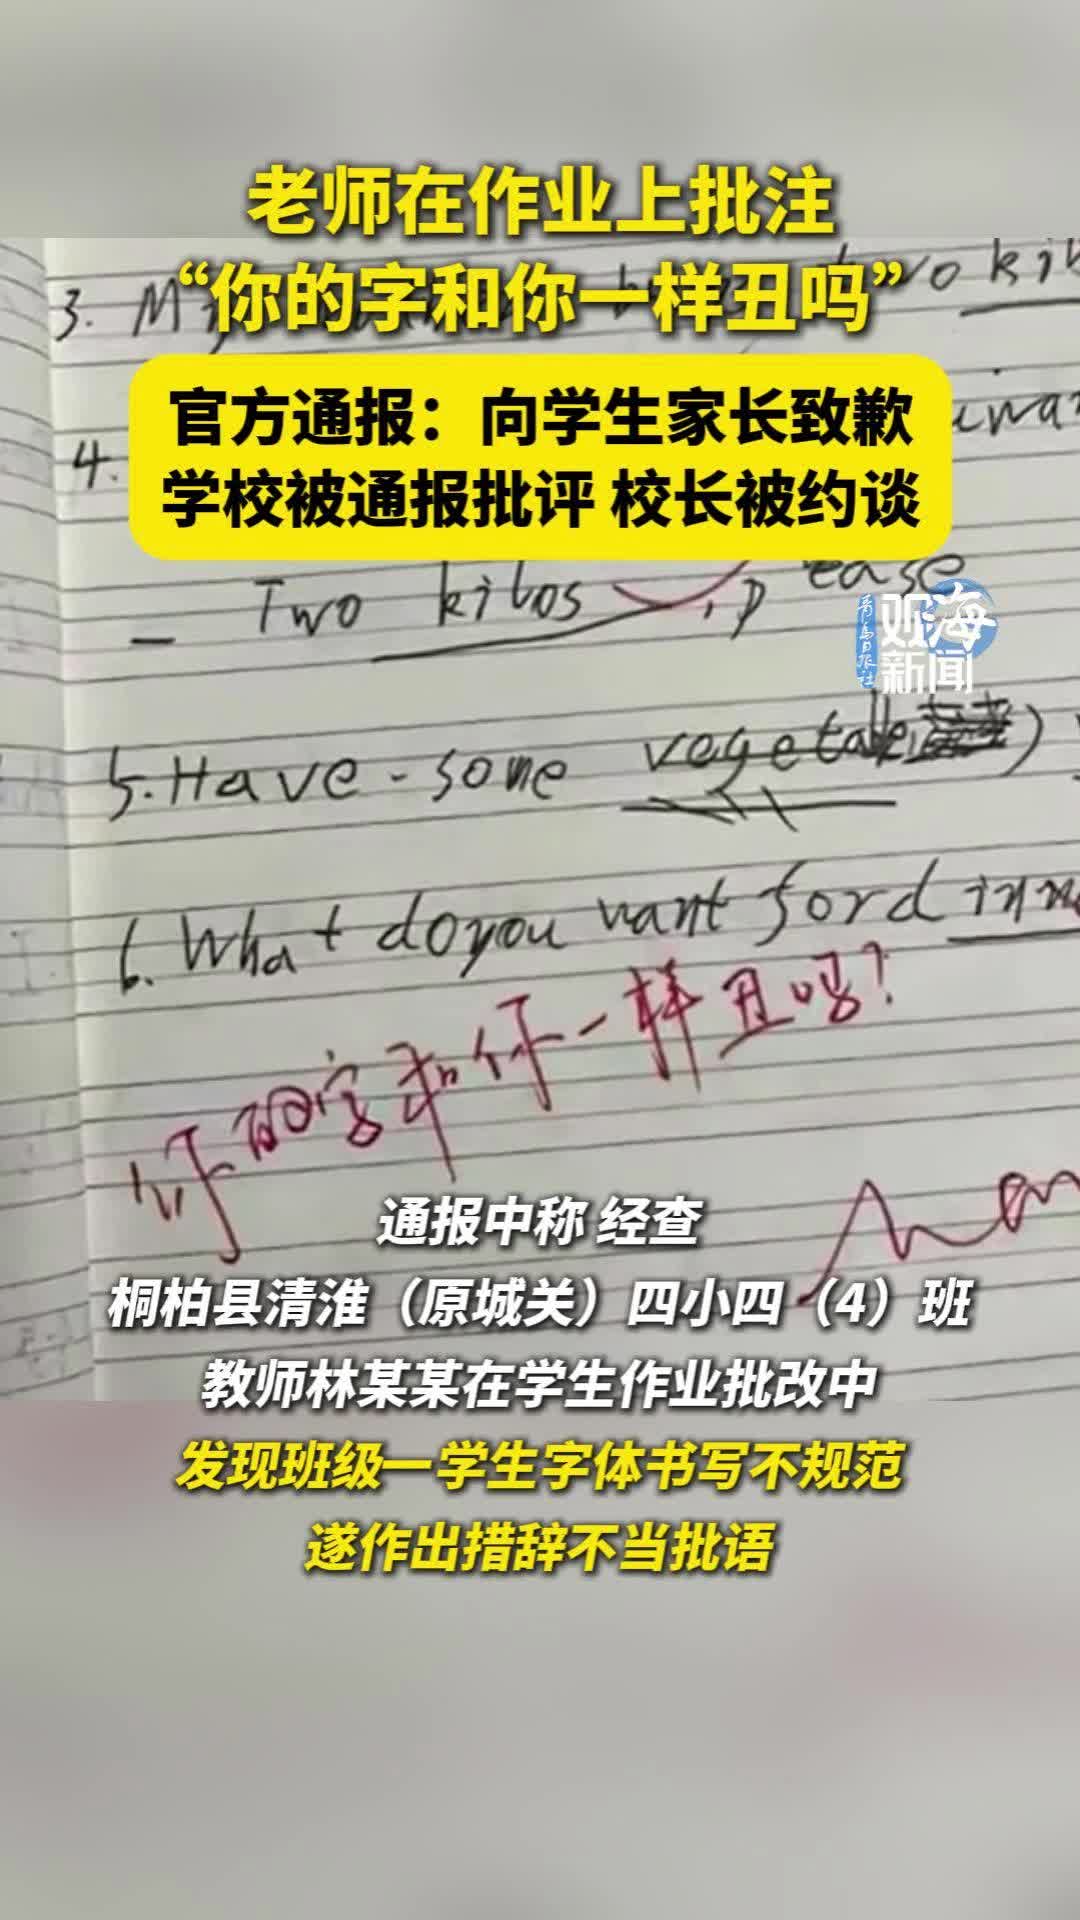 老师在作业上批注
“你的字和你一样丑吗”
3. M
wo ki
官方通报：向学生家长致歉
学校被通报批评 校长被约谈
4.
Two kilos, p ease
青岛日报社
观海
新闻
5. Have some vegetable
6. What do you want for dinn
你的字和你一样丑吗?
通报中称 经查
桐柏县清淮（原城关）四小四（4）班
教师林某某在学生作业批改中
发现班级一学生字体书写不规范
遂作出措辞不当批语